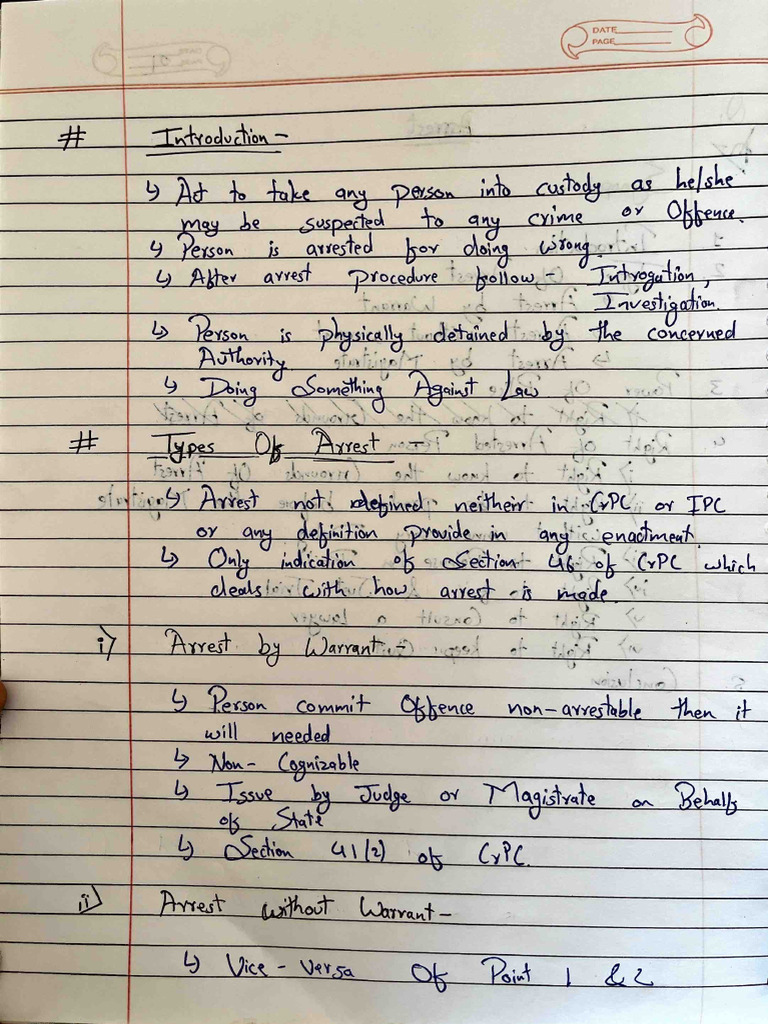 DATE
PAGE
# Introduction -
↳ Act to take any person into custody as he/she
may be suspected to any crime or Offence.
↳ Person is arrested for doing wrong.
↳ After arrest procedure follow - Introgation,
Investigation.
↳ Person is physically detained by the concerned
Authority.
↳ Doing Something Against Law
# Types Of Arrest -
↳ Arrest not defined neitheir in CrPC or IPC
or any definition provide in any enactment.
↳ Only indication of Section 46 of CrPC which
deals with how arrest is made.
i) Arrest by Warrant -
↳ Person commit Offence non-arrestable then it
will needed
↳ Non- Cognizable
↳ Issue by Judge or Magistrate on Behalf
of State
↳ Section 41(2) of CrPC.
ii) Arrest without Warrant -
↳ Vice - Versa Of Point 1 & 2